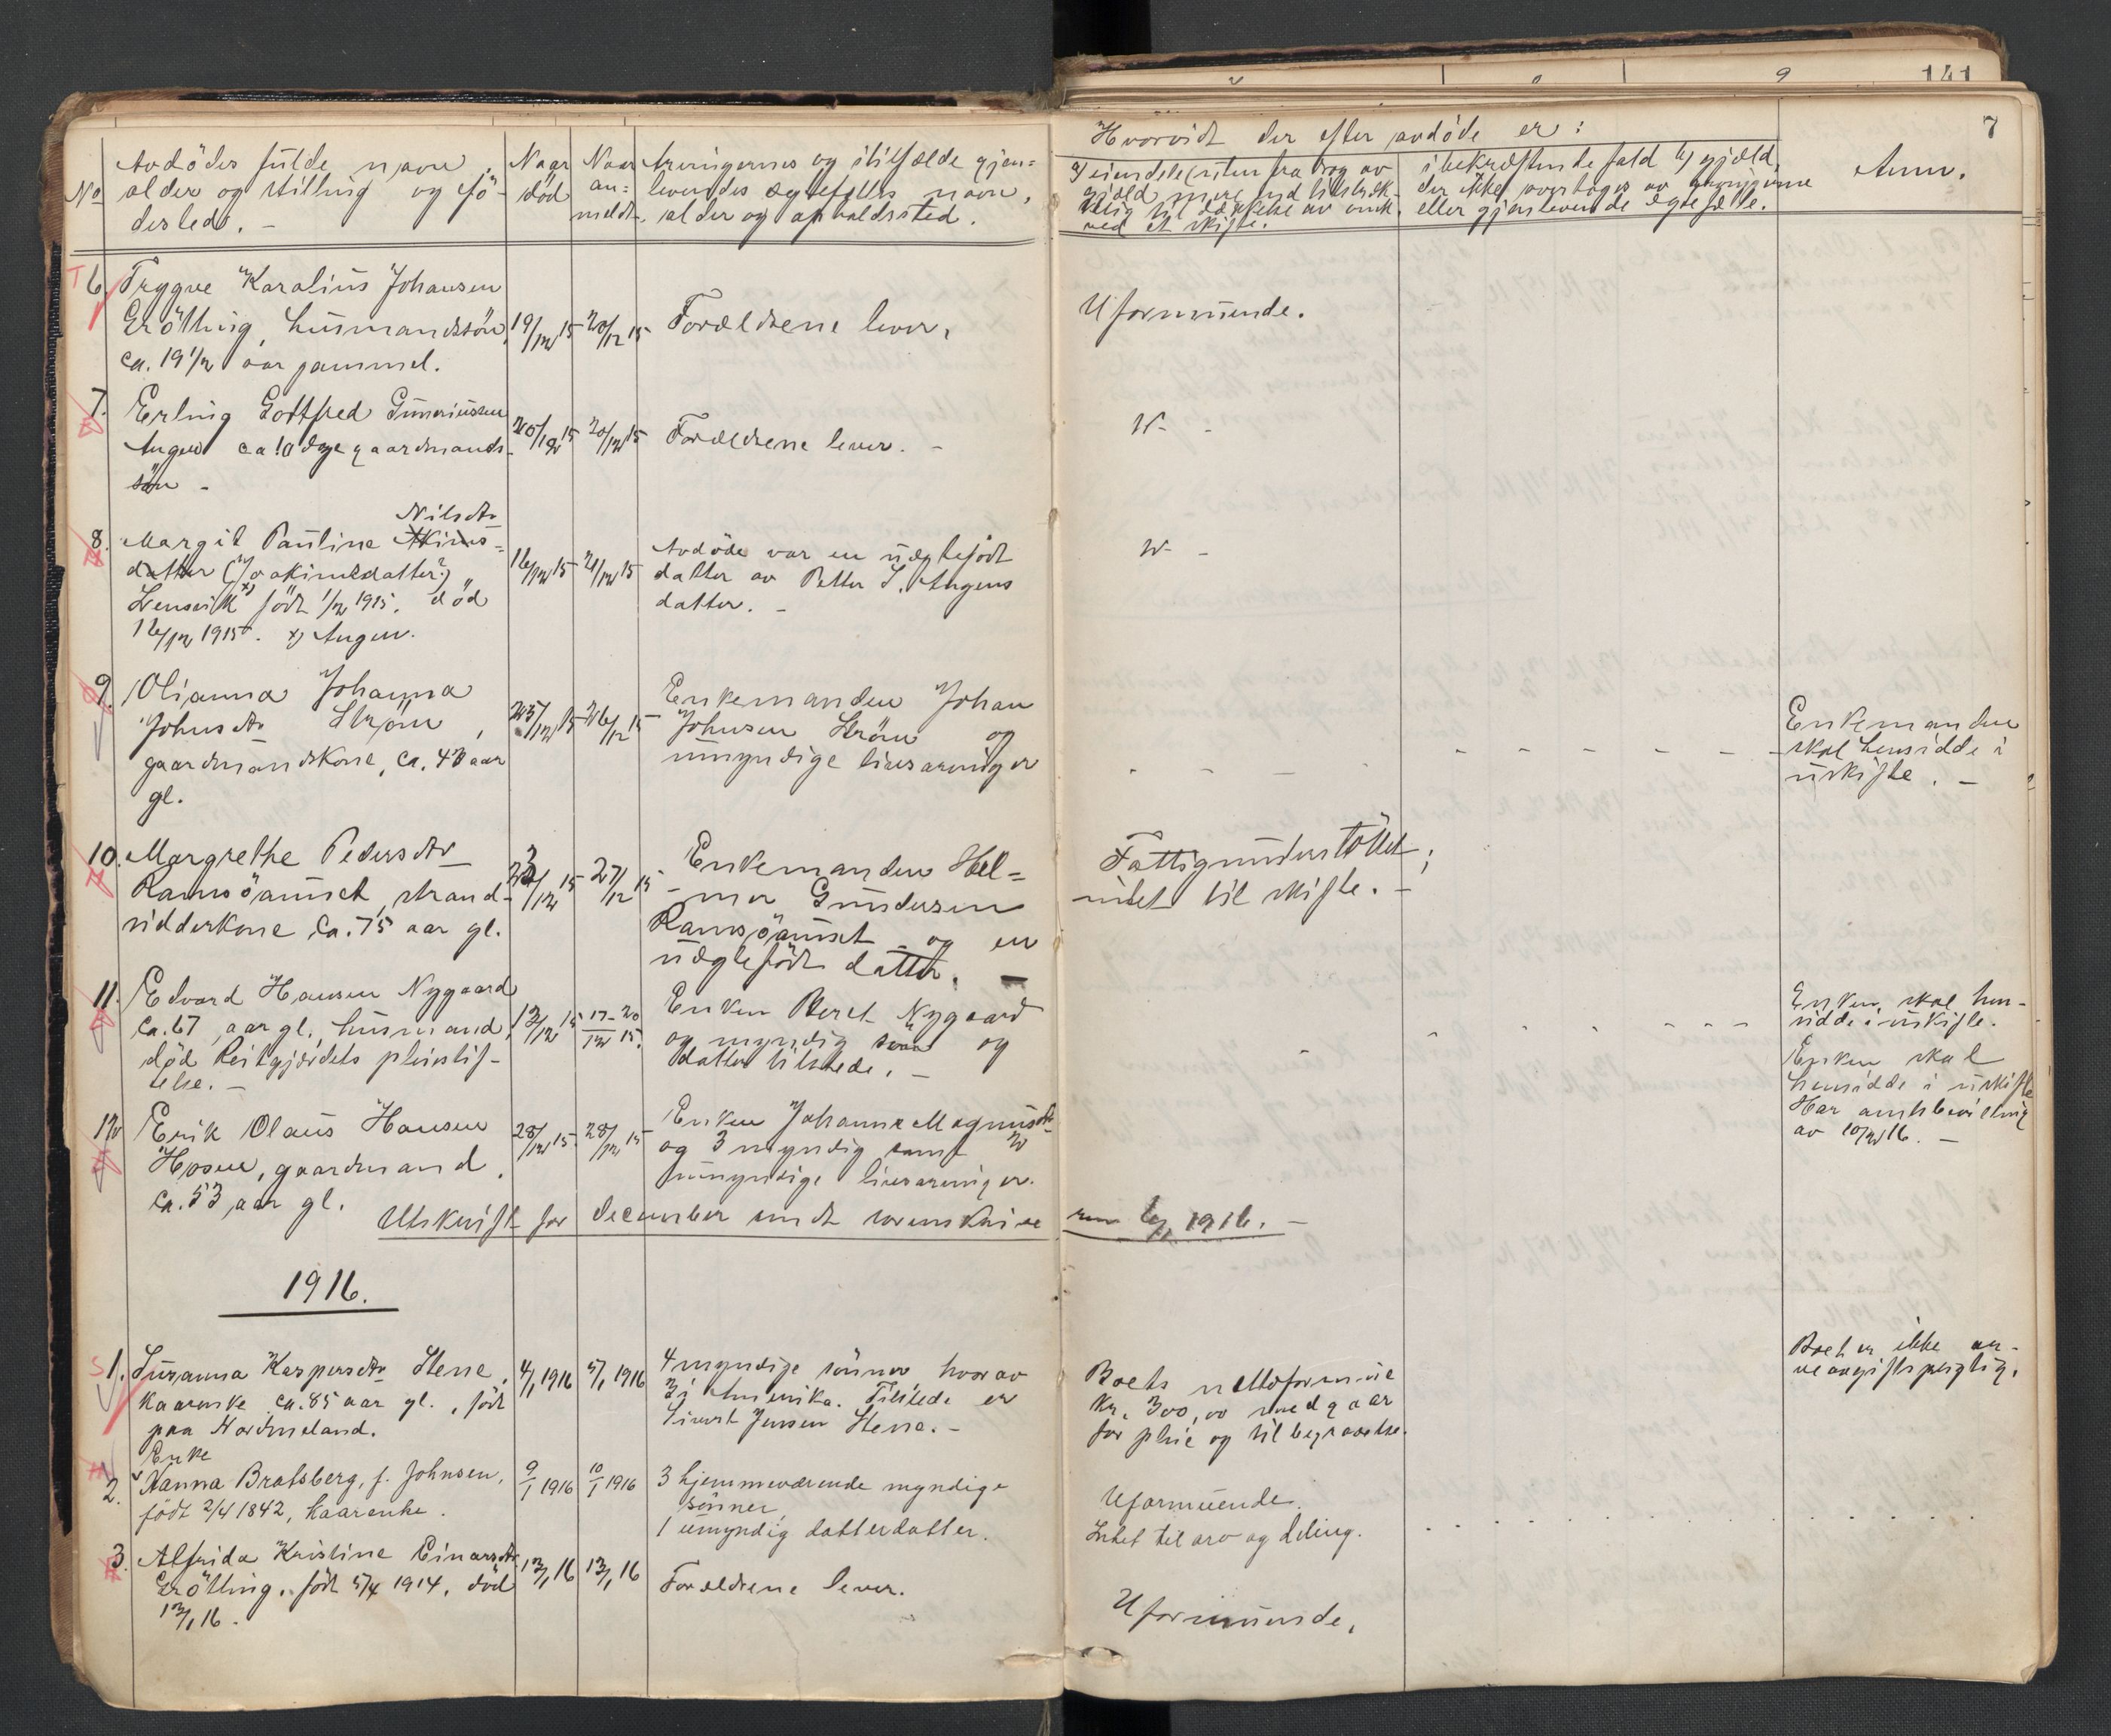 141
7
No
Avdödes fulde navn,
alder og stilling og fö-
dested. -
Naar
död
Naar
an=
meldt.
Arvingernes og i tilfælde gjen=
levendes ægtefælles navn,
alder og opholdssted.
Hvorvidt der efter avdöde er:
a) eiendele (uten fradrag av
gjæld mere end tilstræk-
kelig til dækkelse av omk.
ved et skifte.
i bekræftende fald b) gjæld,
der ikke overtages av arvingerne
eller gjenlevende ægtefælle.
Anm.
6. Trygve Karolius Johansen
Grötting, husmandssön,
ca. 19 1/2 aar gammel.
19/12 15
20/12 15
Forældrene lever.
Uformuende.
7. Erling Gottfred Gunariussen
Angen ca 10 dage gaardmands-
sön -
20/12 15
20/12 15
Forældrene lever. -
8. Margit Pauline Nilsdtr
datter (Joakimsdatter?)
Lensvik x) födt 1/12 1915. död
16/12 1915. x) Angen.
16/12 15
21/12 15
Avdöde var en uægtefödt
datter av Petter J. Angens
datter. -
9. Olianna Johanna
Johnsdtr Ström,
gaardmandskone, ca. 43 aar
gl.
25/12 15
26/12 15
Enkemanden Johan
Johnsen Ström og
umyndige livsarvinger
Enkemanden
skal hensidde i
uskifte. -
10. Margrethe Pedersdtr
Ramsöaunet, strand-
sidderkone ca. 75 aar gl.
27/12 15
Enkemanden Hel=
mer Gundersen
Ramsöaunet og en
uægtefödt datter. -
Fattigunderstöttet;
intet til skifte. -
11. Edvard Hansen Nygaard
ca. 67 aar gl., husmand,
död Reitgjærdets pleiestif-
telse. -
12/12 15
17-20
12 15.
Enken Beret Nygaard
og myndig sön og
datter tilstede. -
Enken skal hen-
sidde i uskifte.
12 Erik Olaus Hansen
Hosen, gaardmand,
ca. 53 aar gl.
28/12 15
28/12 15
Enken Johanna Magnusdtr
og 3 myndig samt 2
umyndige livsarvinger.
Enken skal
hensidde i uskifte
Har amtsbevilling
av 10/2 16. -
Utskrift for december sendt sorenskrive
ren 6/1 1916. -
1916.
1. Susanna Kaspersdtr Stene,
kaarenke ca. 85 aar gl., födt
paa Nordmeland.
4/1 1916
5/1 1916
4 myndige sönner hvorav
2 i Amerika. Tilstede er
Sivert Jensen Stene. -
Boets nettoformue
kr. 300,00 medgaar
for pleie og til begravelse.
Boet er ikke ar-
veavgiftspligtig.
2. Enke
Nanna Bratsberg, f. Johnsen,
födt 2/4 1842, kaarenke.
9/1 1916
10/1 1916
3 hjemmeværende myndige
sönner,
1 umyndig datterdatter.
Uformuende.
Intet til arv og deling.
3. Alfrida Kristine Einarsdtr
Grötting, födt 5/4 1914, död
12/1 16.
12/1 16
12/1 16
Forældrene lever.
Uformuende.